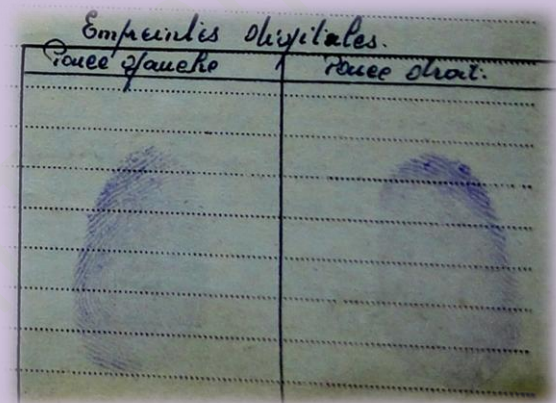 Empreintes digitales.
Pouce gauche
Pouce droit.